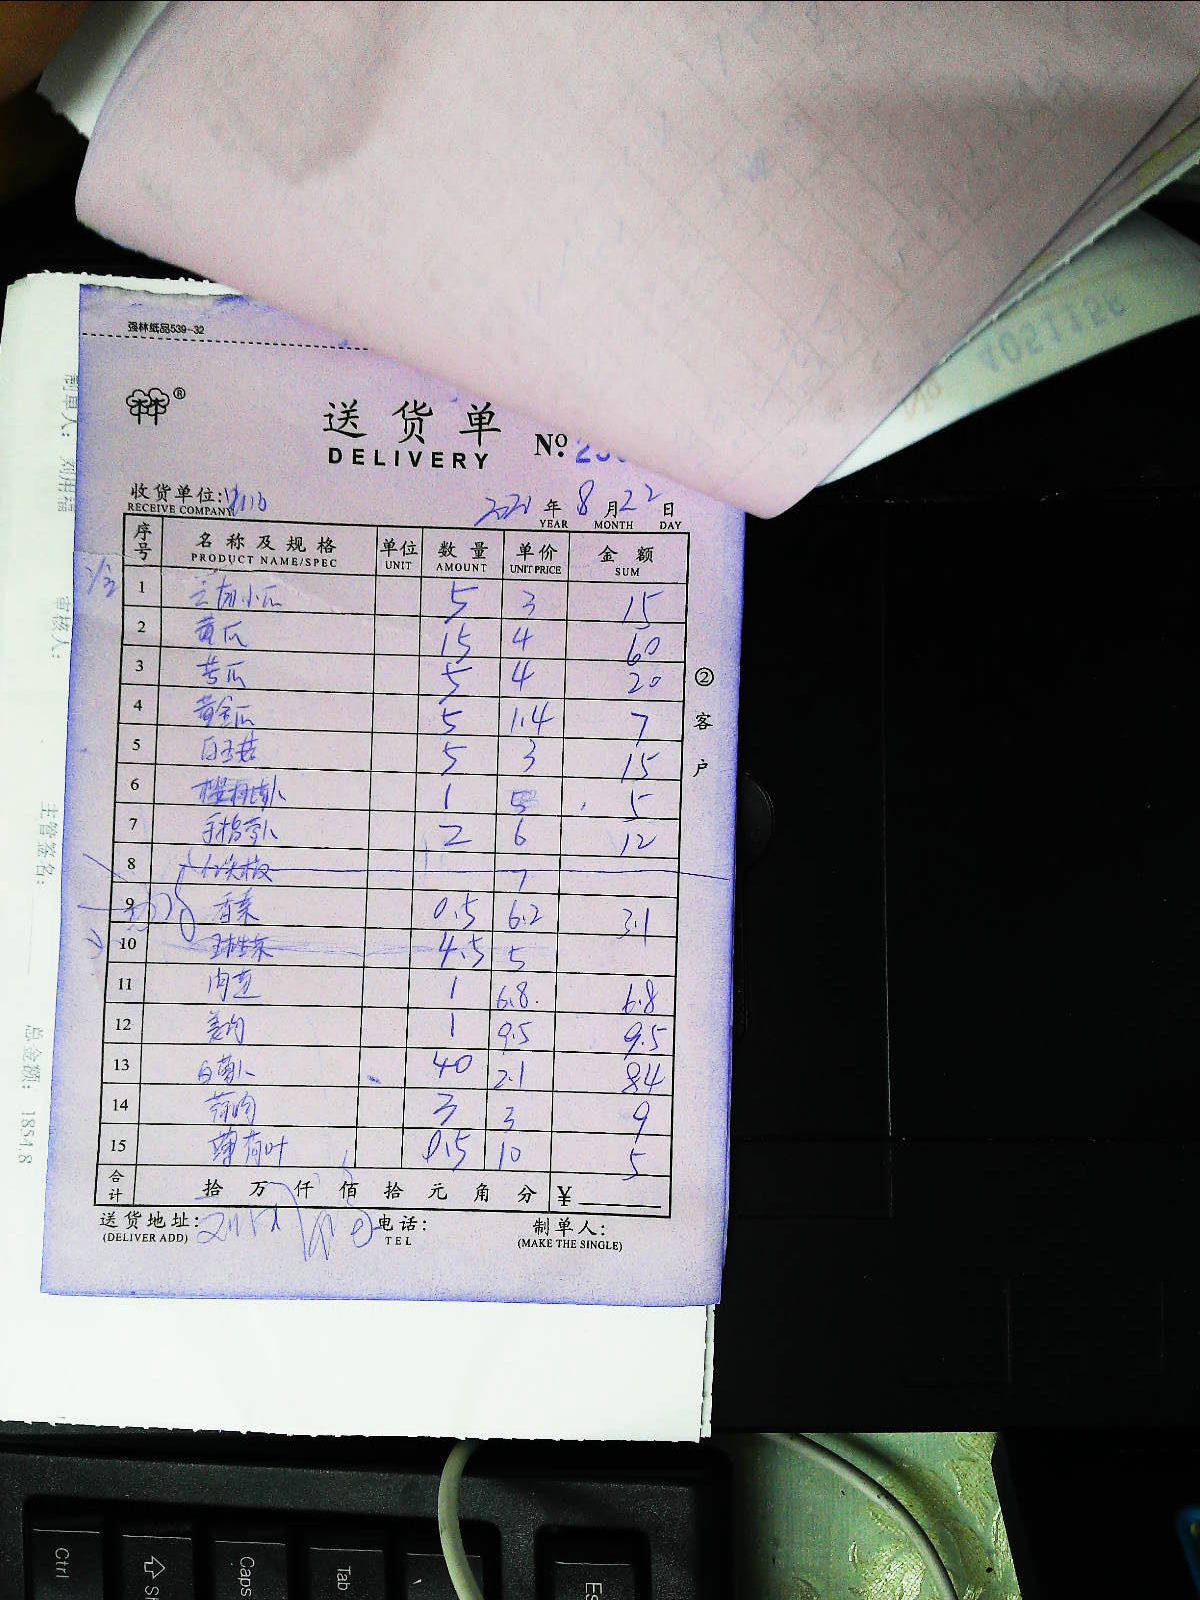 4051156
强林纸品539-32
®
送货单
DELIVERY
№
收货单位:
RECEIVE COMPANY
2021 年 8 月 22 日
YEAR MONTH DAY
序号 名称及规格 单位 数量 单价 金额
PRODUCT NAME/SPEC UNIT AMOUNT UNIT PRICE SUM
1 云南小瓜 5 3 15
2 黄瓜 15 4 60
3 苦瓜 5 4 20
4 黄金瓜 5 1.4 7
5 白玉菇 5 3 15
6 樱桃萝卜 1 5 5
7 手指萝卜 2 6 12
8 尖椒 7
9 香菜 0.5 6.2 3.1
10 4.5 5
11 1 6.8 6.8
12 姜肉 1 9.5 9.5
13 白萝卜 40 2.1 84
14 3 3 9
15 薄荷叶 0.5 10 5
合计 拾 万 仟 佰 拾 元 角 分 ¥
送货地址: 电话: 制单人:
(DELIVER ADD) TEL (MAKE THE SINGLE)
② 客户
制单人:
审核人:
主管签名:
总金额: 1854.8
Ctrl
Caps
Tab